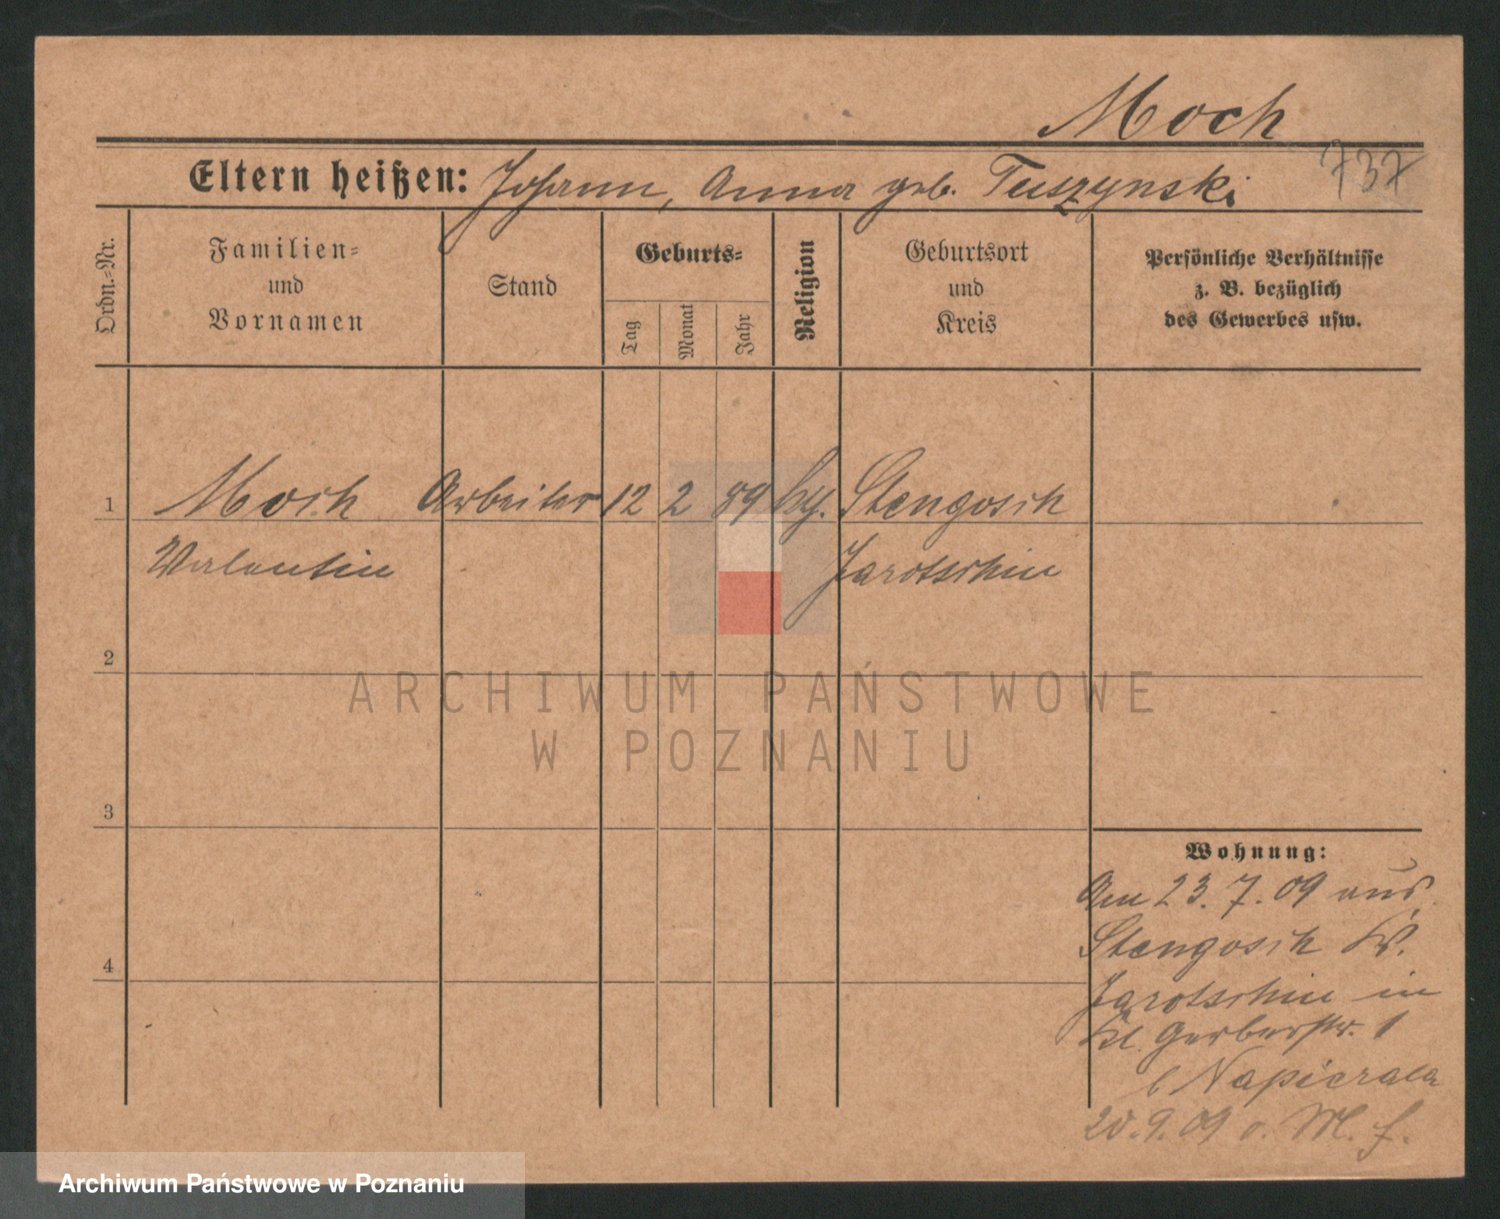 Moch
737
Eltern heißen: Johann, Anna geb. Tuszynski
Ordn.-Nr.
Familien-
und
Vornamen
Stand
Geburts-
Tag
Monat
Jahr
Religion
Geburtsort
und
Kreis
Persönliche Verhältnisse
z. B. bezüglich
des Gewerbes usw.
1 Moch Arbeiter 12 2 89 Stengosch
Valentin Jarotschin
2
3
4
Wohnung:
Am 23.7.09 aus
Stengosch Kr.
Jarotschin in
Kl. Gerberstr. 1
b Napierala
20.9.09
ARCHIWUM PAŃSTWOWE
W POZNANIU
Archiwum Państwowe w Poznaniu